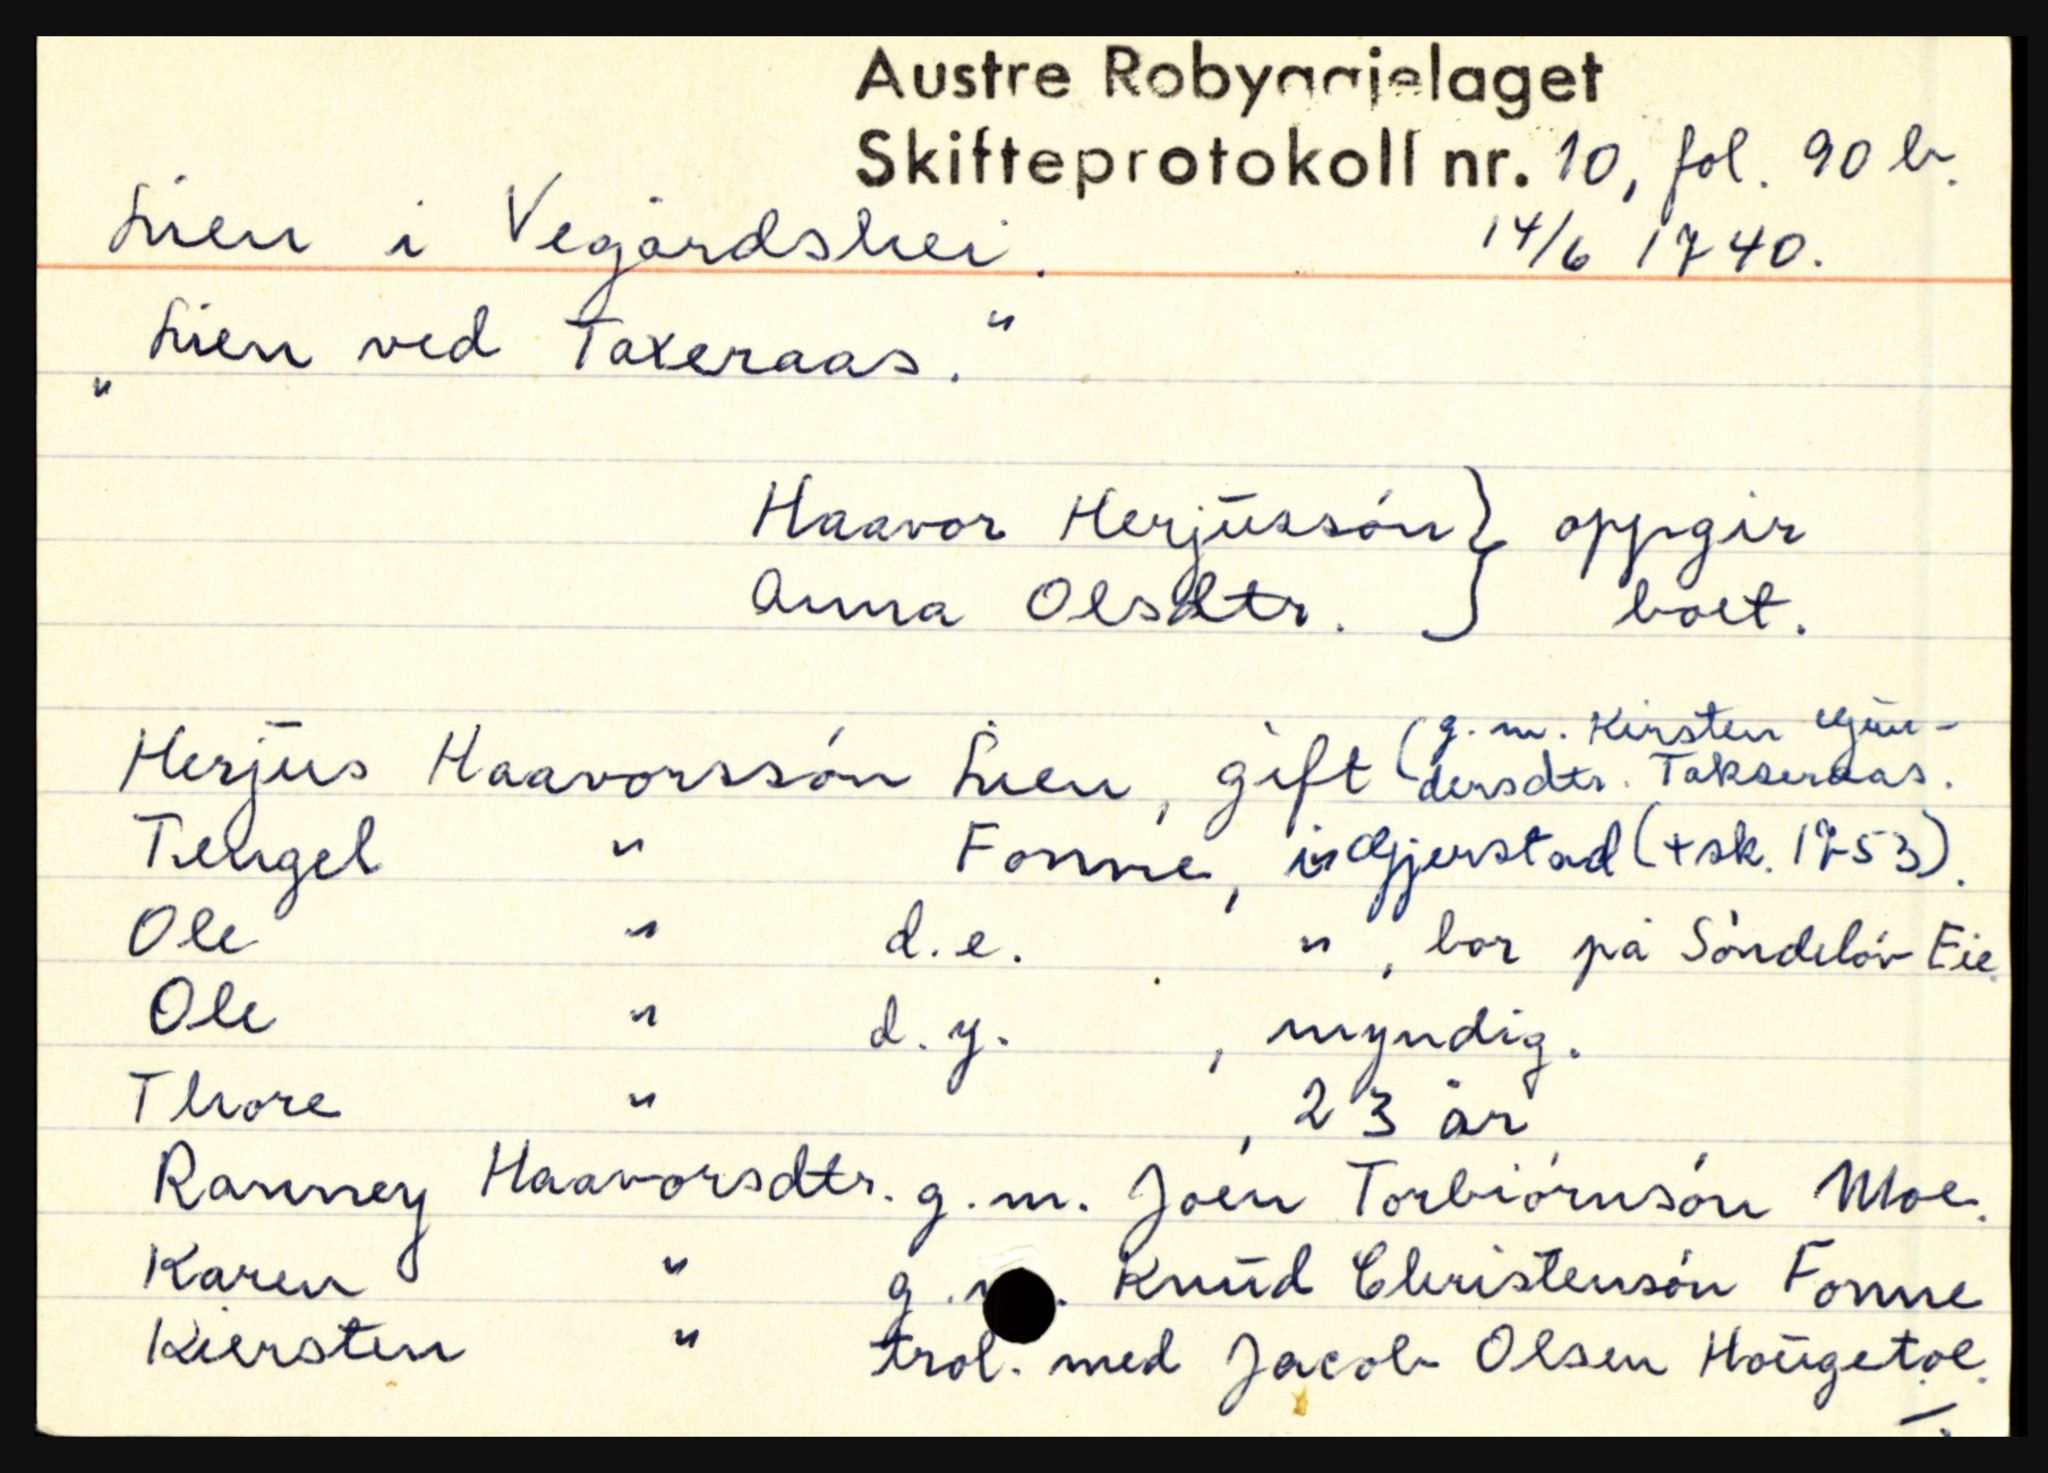 Austre Robyggjelaget
Skifteprotokoll nr. 10, fol. 90 b.
Lien i Vegårdshei. 14/6 1740.
„Lien ved Taxeraas."
Haavor Herjŭssøn } oppgir
Anna Olsdtr. } boet.
Herjŭs Haavorssøn Lien, gift (g. m. Kirsten Gŭn-
dersdtr. Takseraas.
Tengel " Fonne, i Gjerstad (+ sk. 1753).
Ole " d. e. ", bor på Søndeløv Eie.
Ole " d. y. , myndig.
Thore " , 23 år
Ranney Haavorsdtr. g. m. Joen Torbiørnsøn Moe.
Karen " g. m. Knŭd Christensøn Fonne
Kiersten " trol. med Jacob Olsen Hoŭgetoe.